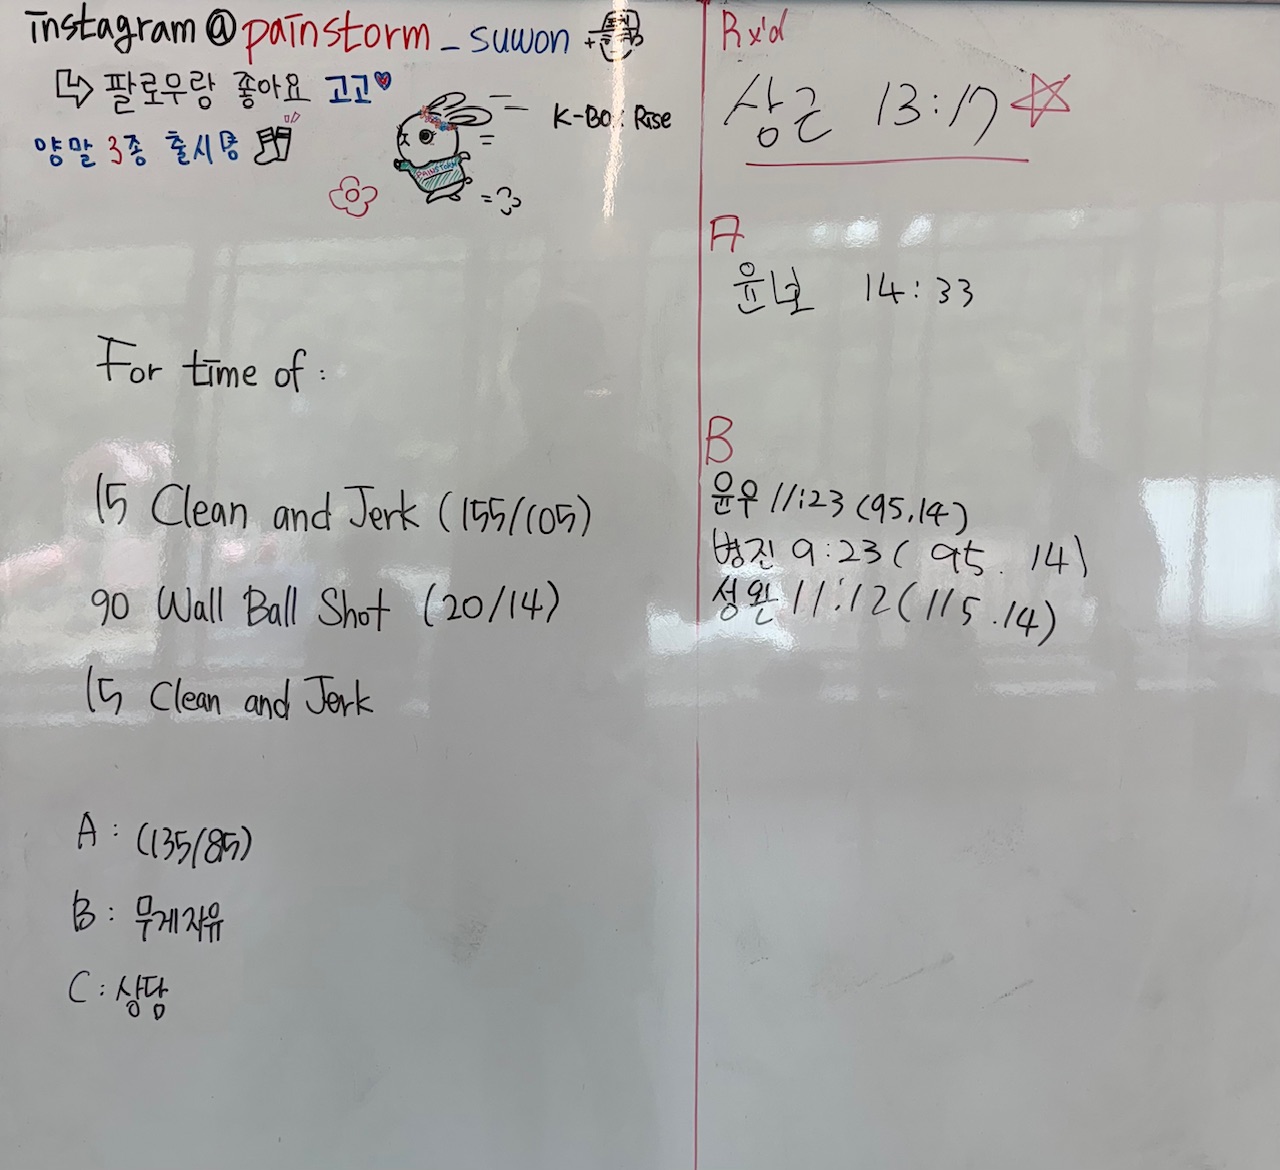 instagram@painstorm_suwon
팔로우랑 좋아요 고고
양말 3종 출시
K-Box Rise
PAINSTORM
For time of :
15 Clean and Jerk (155/105)
90 Wall Ball Shot (20/14)
15 Clean and Jerk
A : (135/85)
B : 무게자유
C : 상담
Rx'd
상근 13:17
A
윤보 14:33
B
윤우 11:23 (95.14)
병진 9:23( 95. 14)
성완 11:12(115.14)